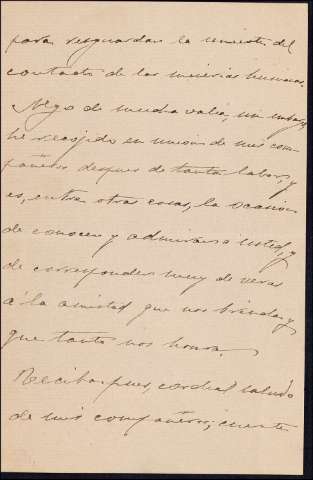 para resguardar la mente del
contacto de las miserias humanas.
Algo de mucha valía, sin embargo,
he recogido en union de mis com-
pañeros despues de tanta labor, y
es, entre otras cosas, la ocasion
de conocer y admirar a usted, y
de corresponder muy de veras
á la amistad que nos brinda y
que tanto nos honra.
Reciba, pues, cordial saludo
de mis compañeros; cuente